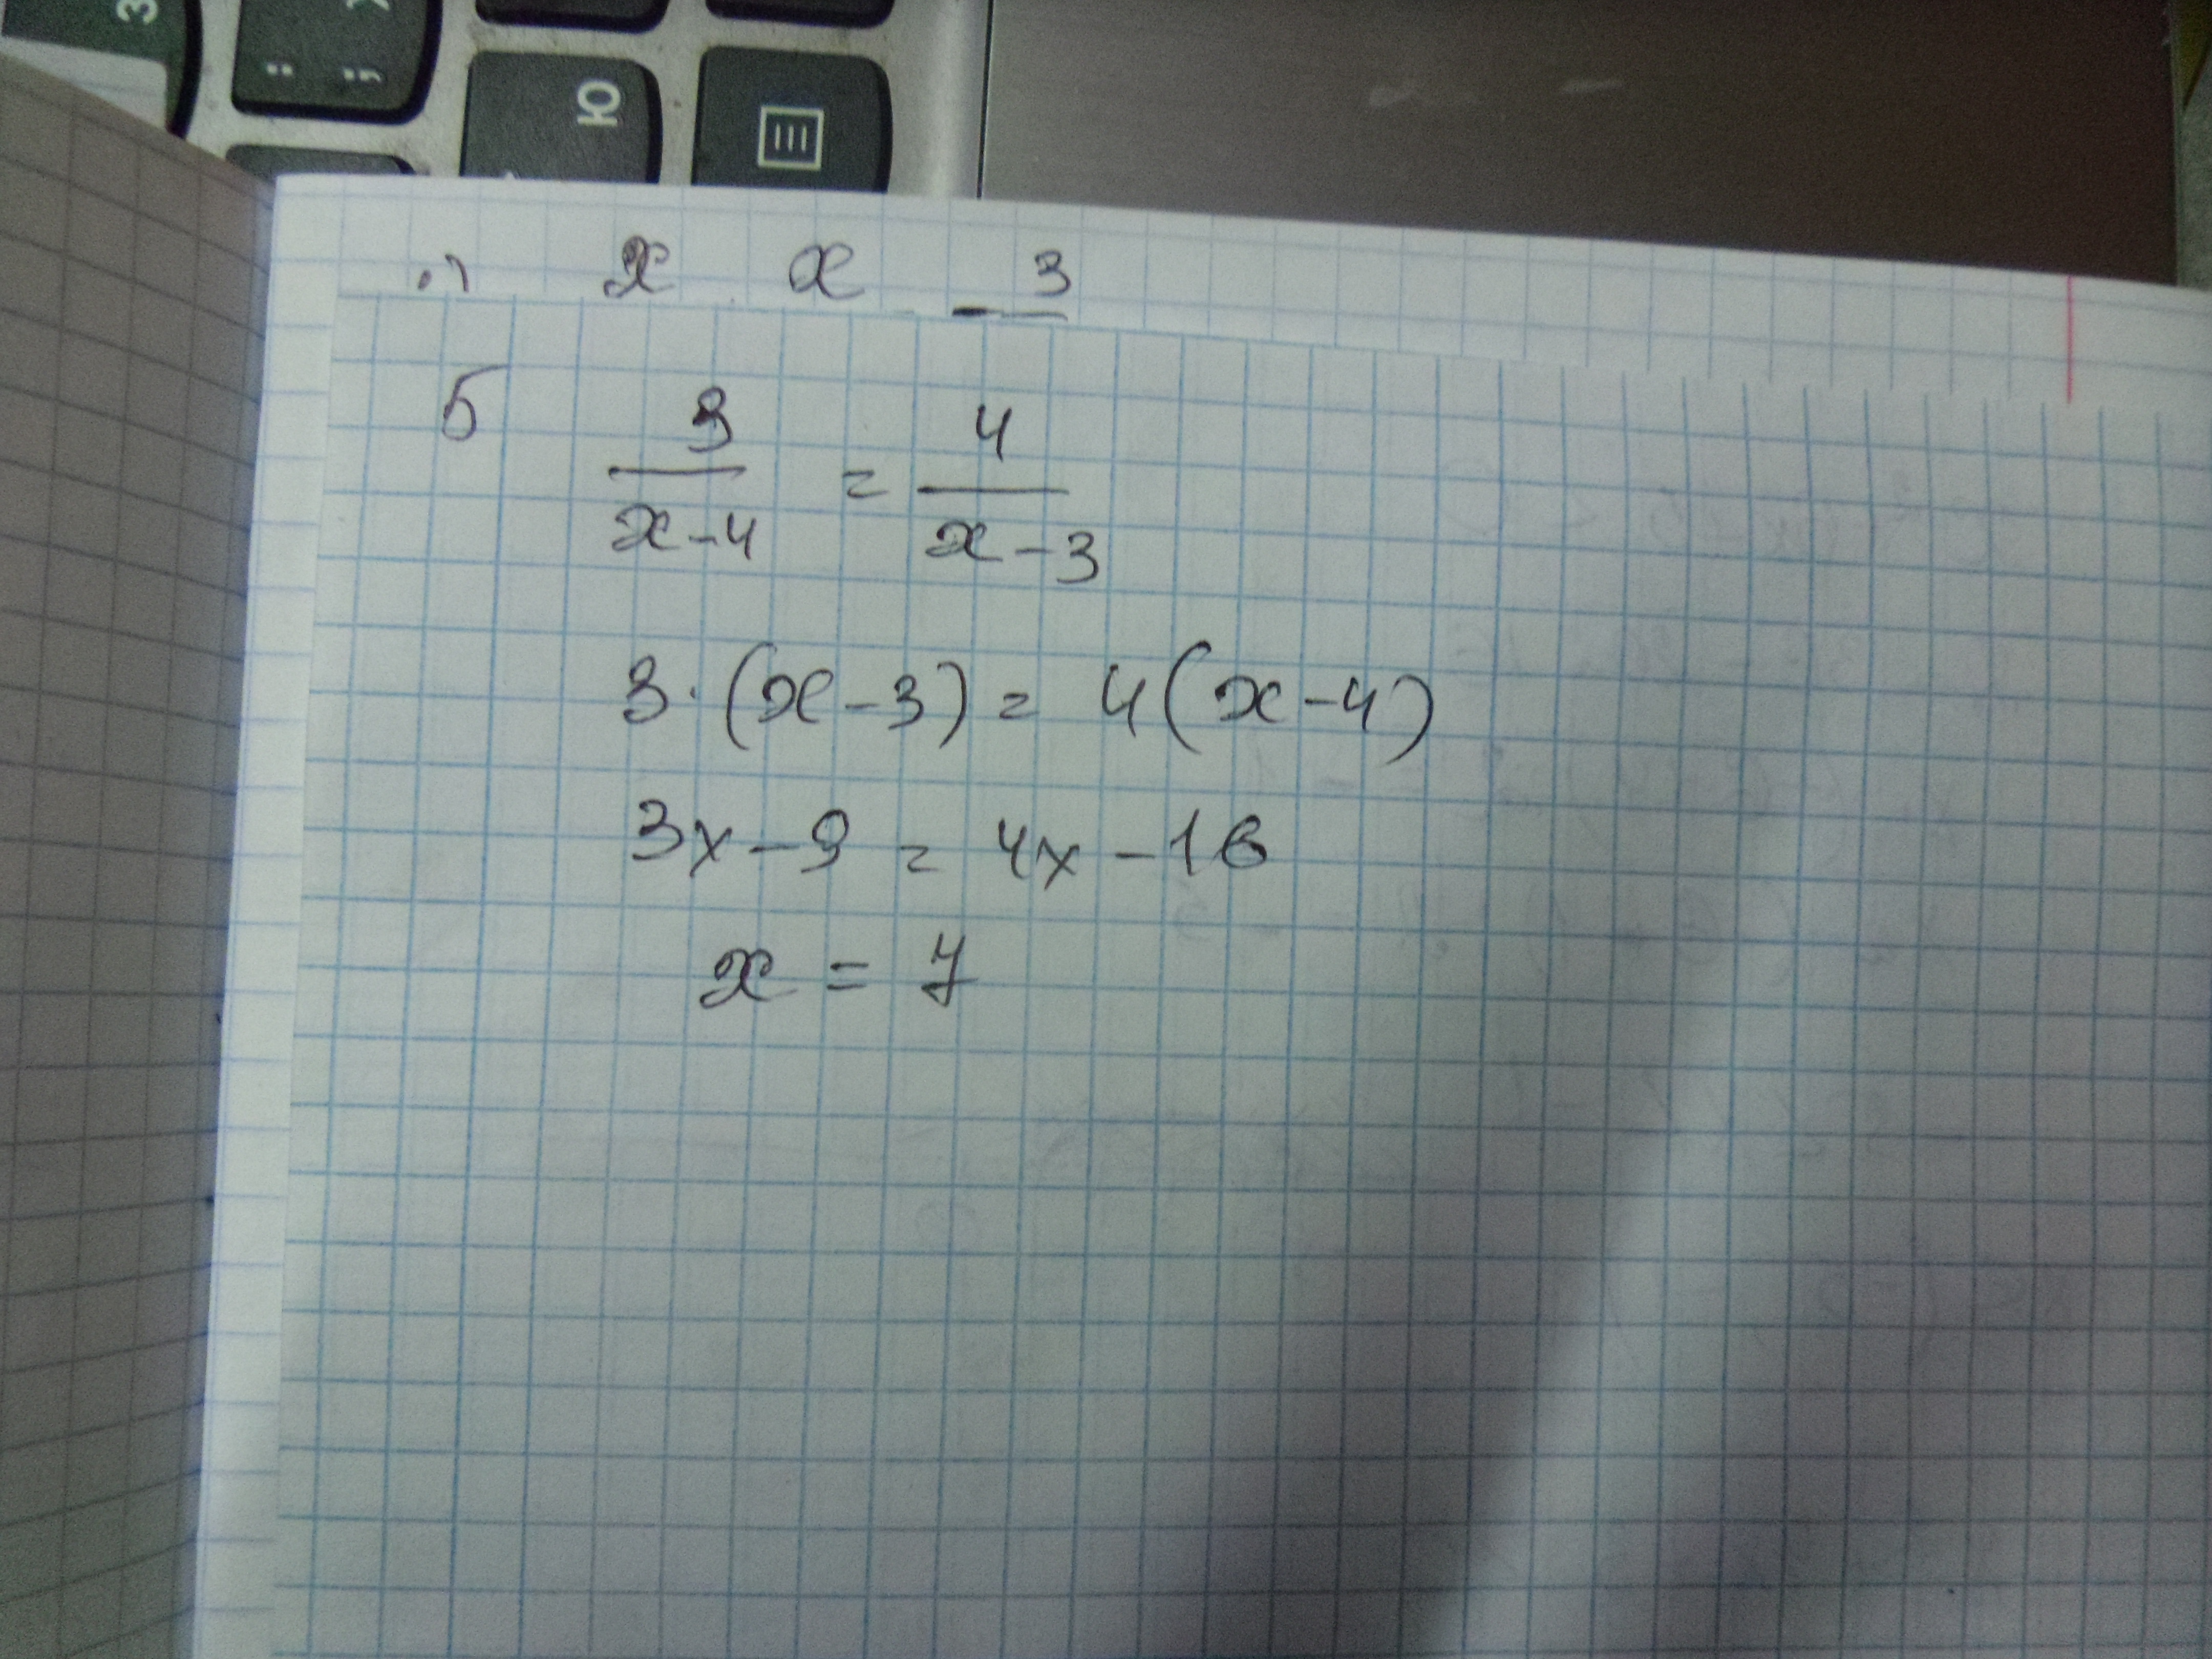 З
Ю
x x - 3
б 3/(x-4) = 4/(x-3)
3·(x-3) = 4(x-4)
3x-9 = 4x-16
x = 7